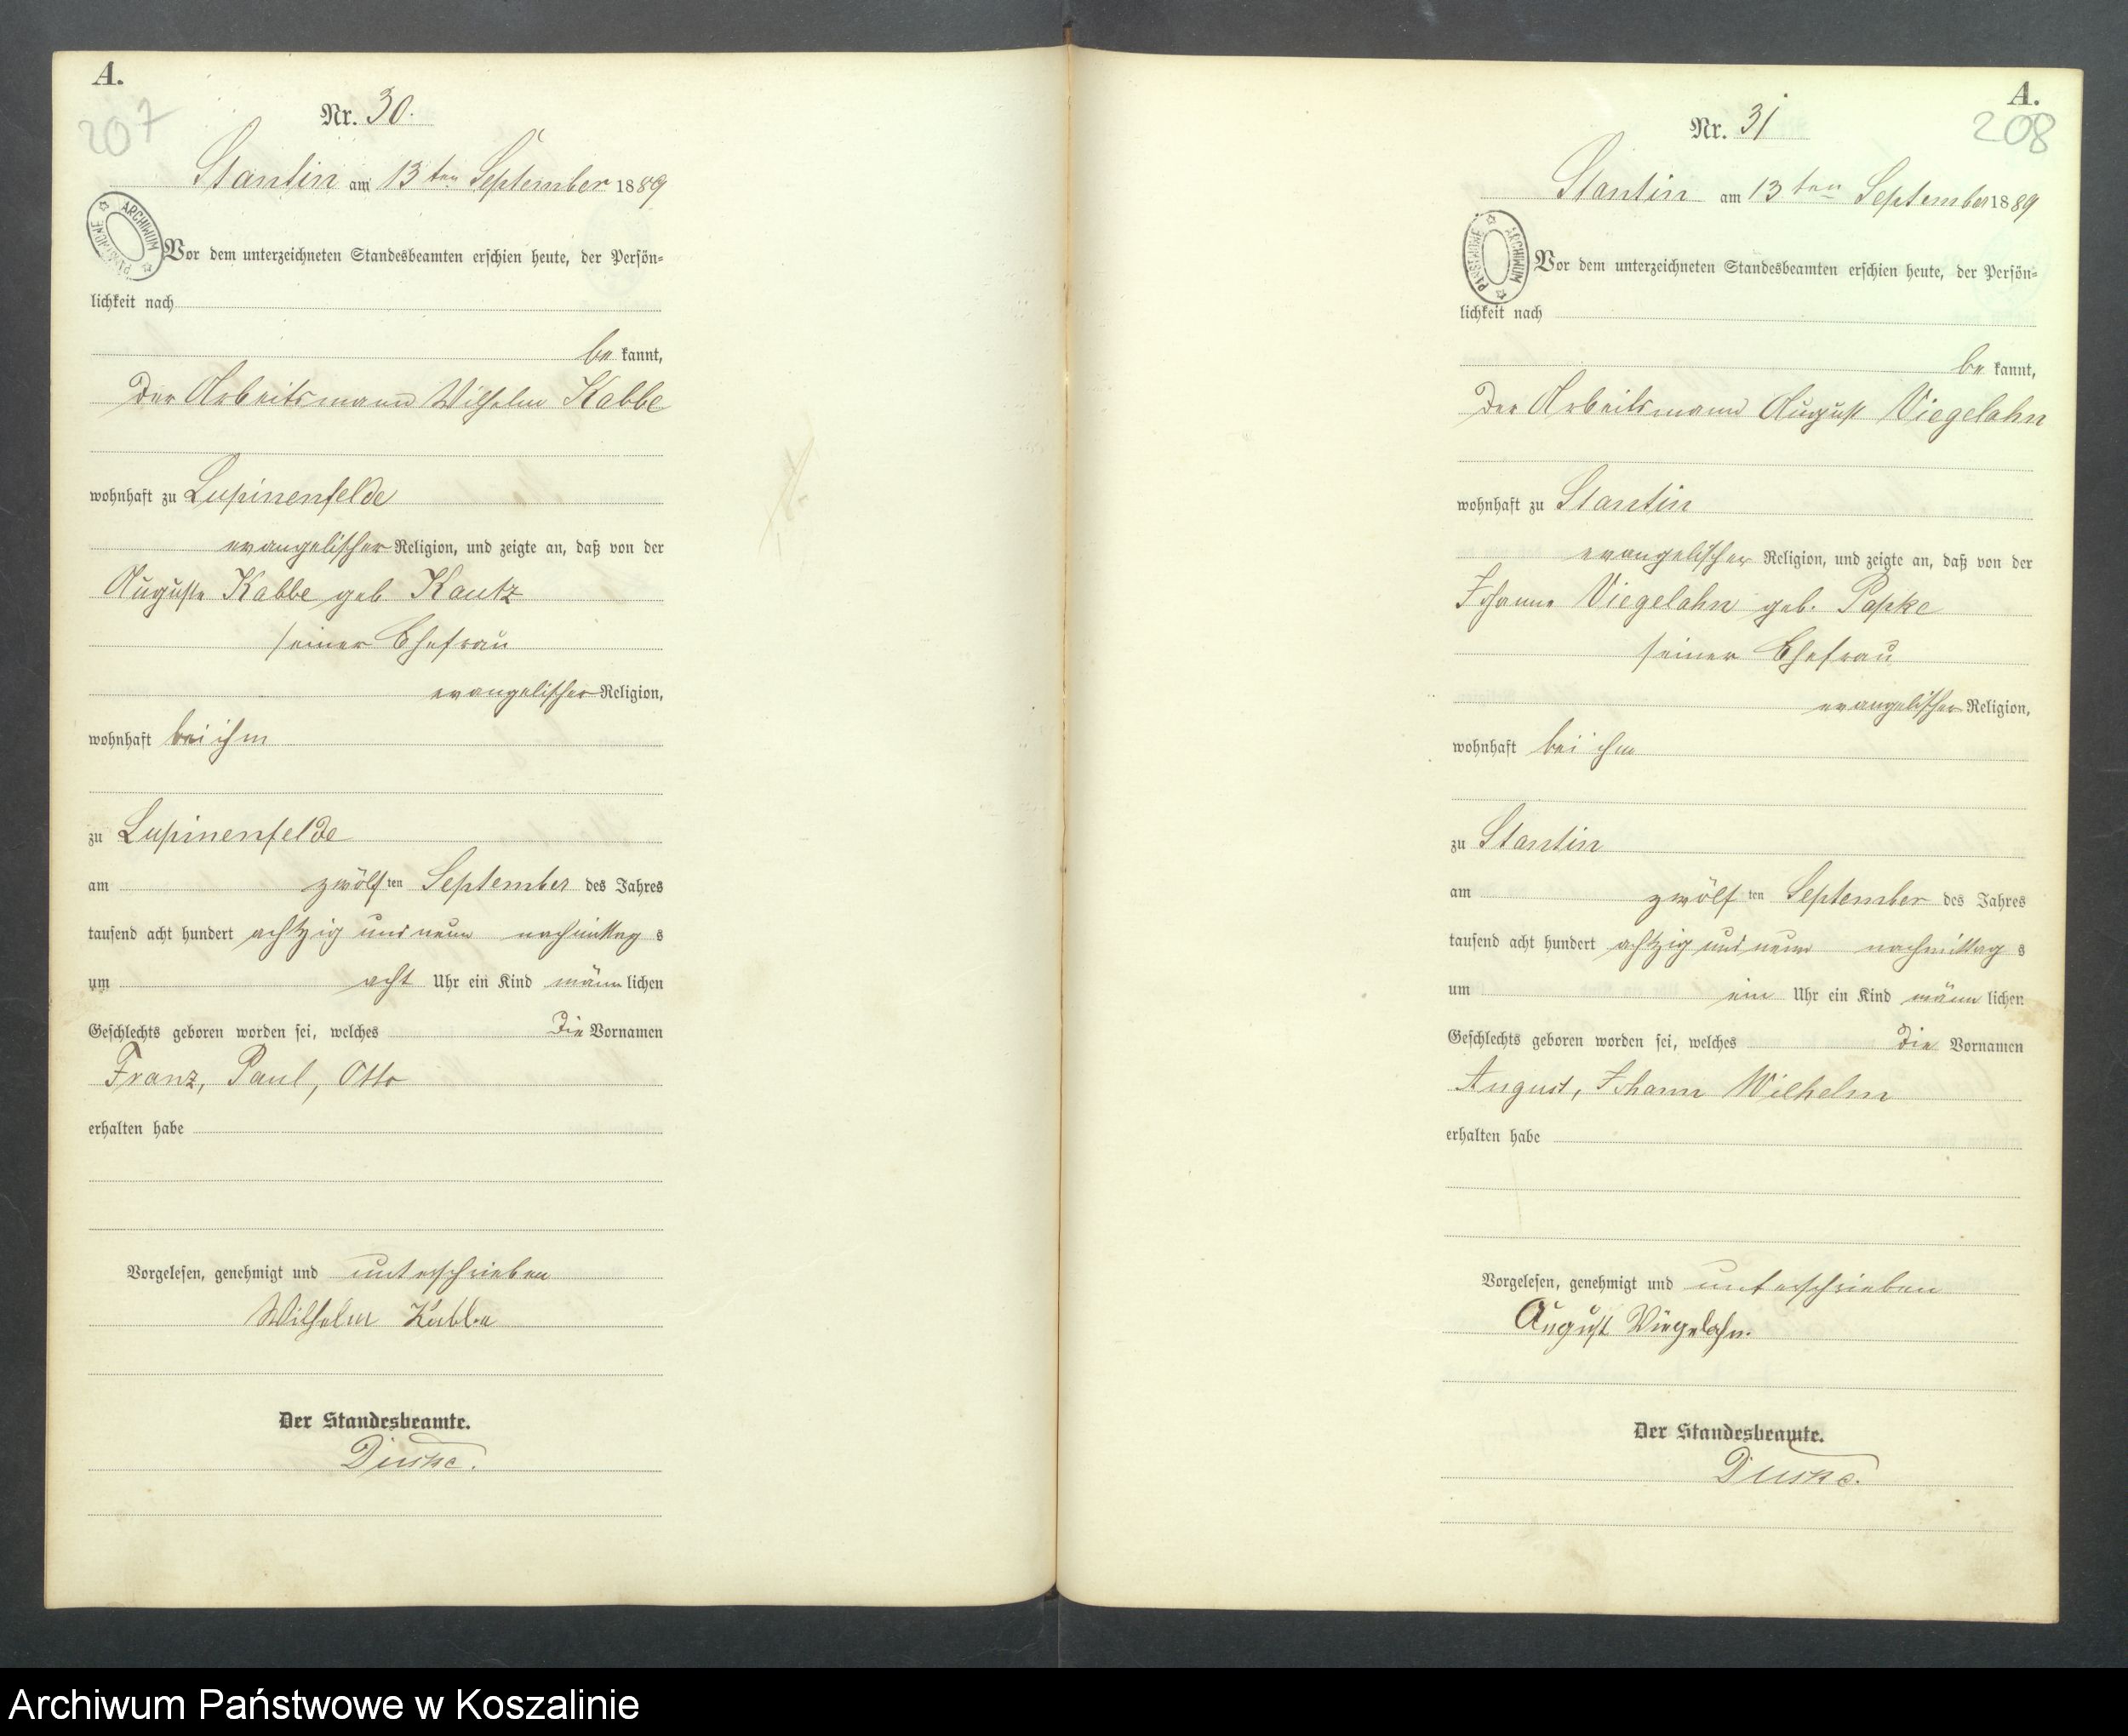 A.
207
Nr. 30.
Stantin am 13ten September 1889
ARCHIWUM PAŃSTWOWE
Vor dem unterzeichneten Standesbeamten erschien heute, der Persön-
lichkeit nach
be kannt,
der Arbeitsmann Wilhelm Kabbe
wohnhaft zu Lupinenfelde
evangelischer Religion, und zeigte an, daß von der
Auguste Kabbe geb Kautz
seiner Ehefrau
evangelischer Religion,
wohnhaft bei ihm
zu Lupinenfelde
am zwölf ten September des Jahres
tausend acht hundert achtzig und neun nachmittag s
um acht Uhr ein Kind männ lichen
Geschlechts geboren worden sei, welches die Vornamen
Franz, Paul, Otto
erhalten habe
Vorgelesen, genehmigt und unterschrieben
Wilhelm Kabbe
Der Standesbeamte.
Duske.
A.
208
Nr. 31
Stantin am 13ten September 1889
ARCHIWUM PAŃSTWOWE
Vor dem unterzeichneten Standesbeamten erschien heute, der Persön-
lichkeit nach
be kannt,
der Arbeitsmann August Viegelahn
wohnhaft zu Stantin
evangelischer Religion, und zeigte an, daß von der
Johanne Viegelahn geb. Papke
seiner Ehefrau
evangelischer Religion,
wohnhaft bei ihm
zu Stantin
am zwölf ten September des Jahres
tausend acht hundert achtzig und neun nachmittag s
um ein Uhr ein Kind männ lichen
Geschlechts geboren worden sei, welches die Vornamen
August, Johann Wilhelm
erhalten habe
Vorgelesen, genehmigt und unterschrieben
August Viegelahn.
Der Standesbeamte.
Duske.
Archiwum Państwowe w Koszalinie